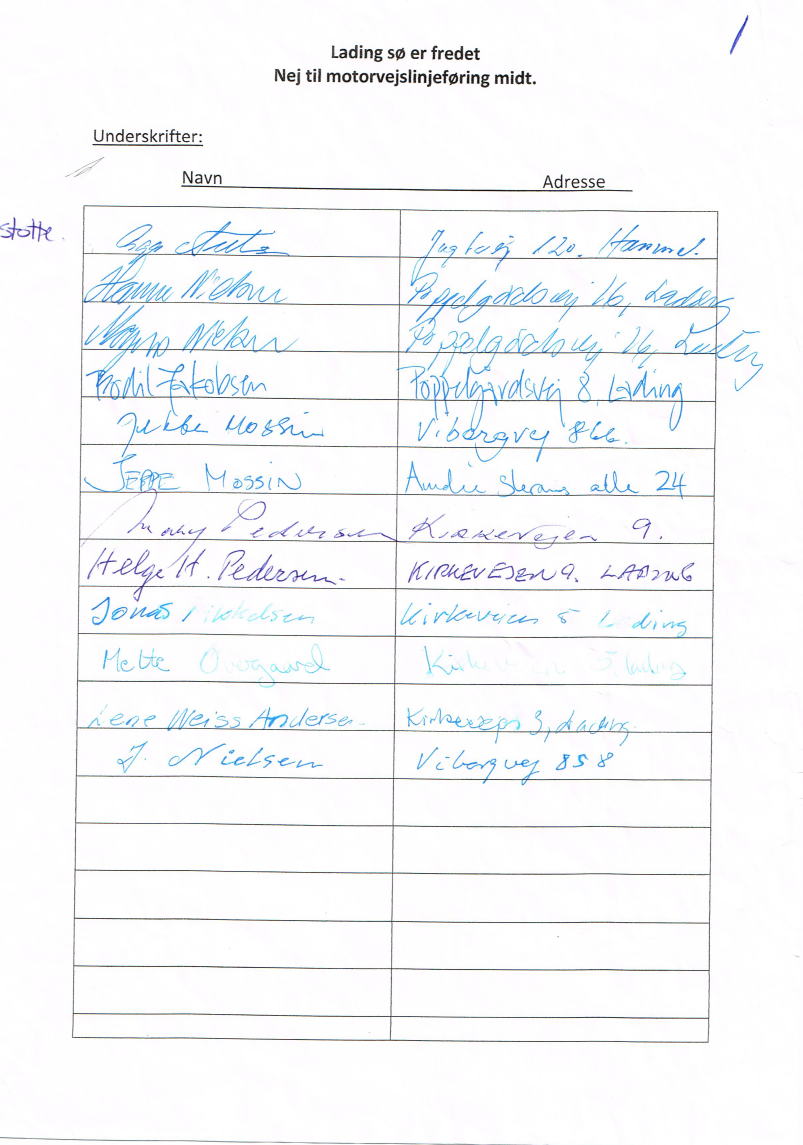 1
Lading sø er fredet
Nej til motorvejslinjeføring midt.
Underskrifter:
Navn Adresse
støtte. 120. Hammel.
Hanne Nielsen Poppelgårdsvej 16, Lading
Mogens Nielsen Poppelgårdsvej 16, Lading
Bodil Jakobsen Poppelgårdsvej 8, Lading
Mossin Viborgvej 866.
JEPPE MOSSIN alle 24
Pedersen Kirkevejen 9.
Helge H. Pedersen. KIRKEVEJEN 9. LADING
Jonas Mikkelsen Kirkevejen 5 Lading
Mette Overgaard Kirkevejen 5 lading
Lene Weiss Andersen Kirkevejen 3, Lading
J. Nielsen Viborgvej 858